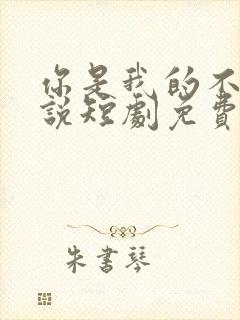 你是我的不
說短劇免費
朱書琴